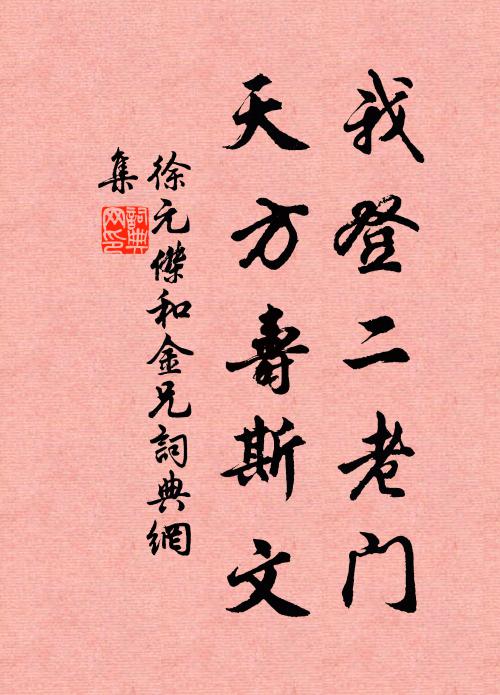 我登二老門
天方壽斯文
徐元傑和金兄詞典網
集
詞典
网印